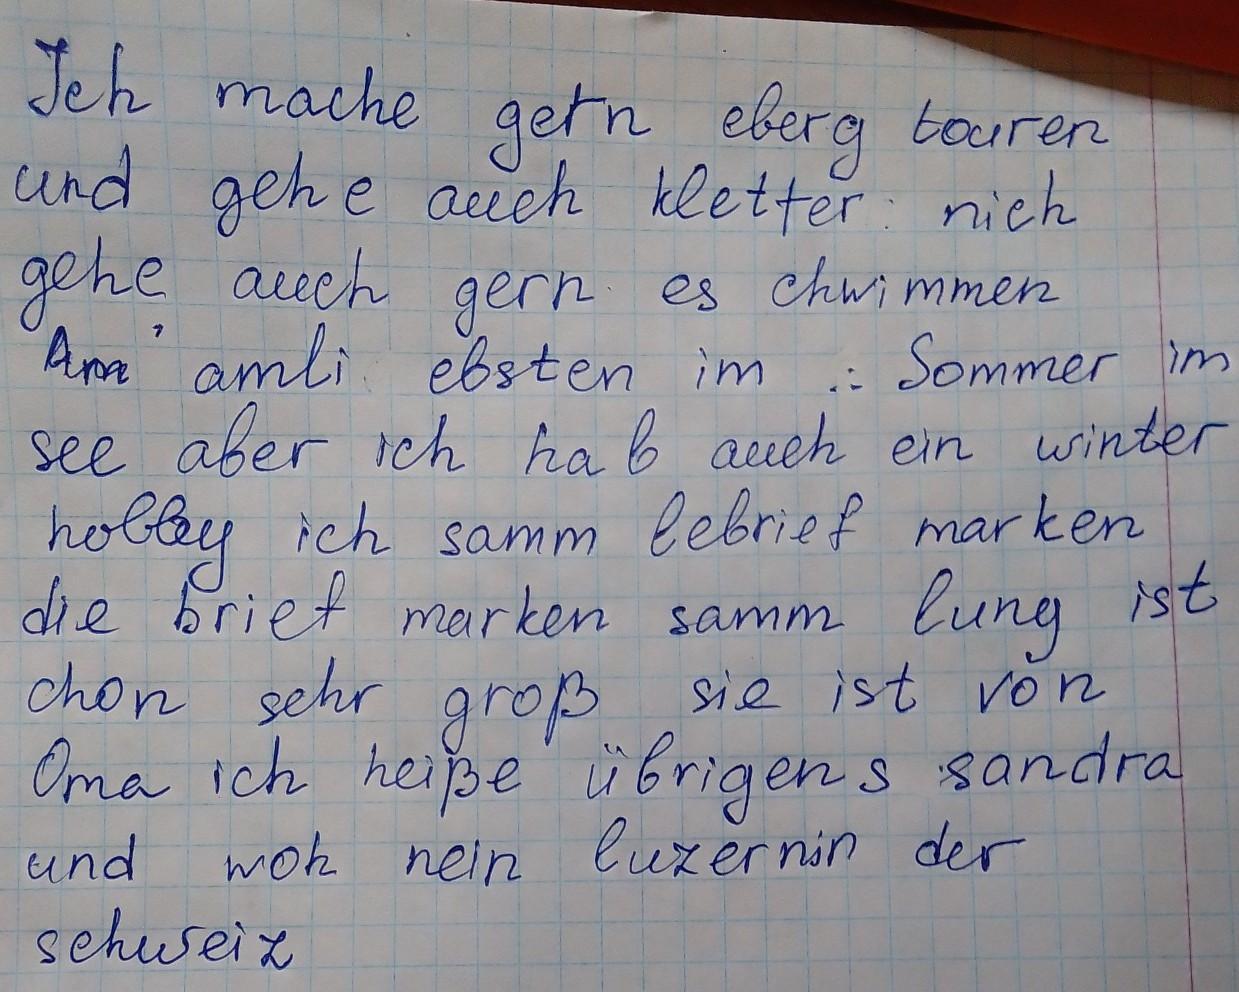 Ich mache gern eberg touren
und gehe auch kletter: nich
gehe auch gern es chwimmen
Am amli ebsten im .: Sommer im
see aber ich hab auch ein winter
hobby ich samm lebrief marken
die brief marken samm lung ist
chon sehr groß sie ist von
Oma ich heiße übrigens sandra
und woh nein luzernin der
schweiz